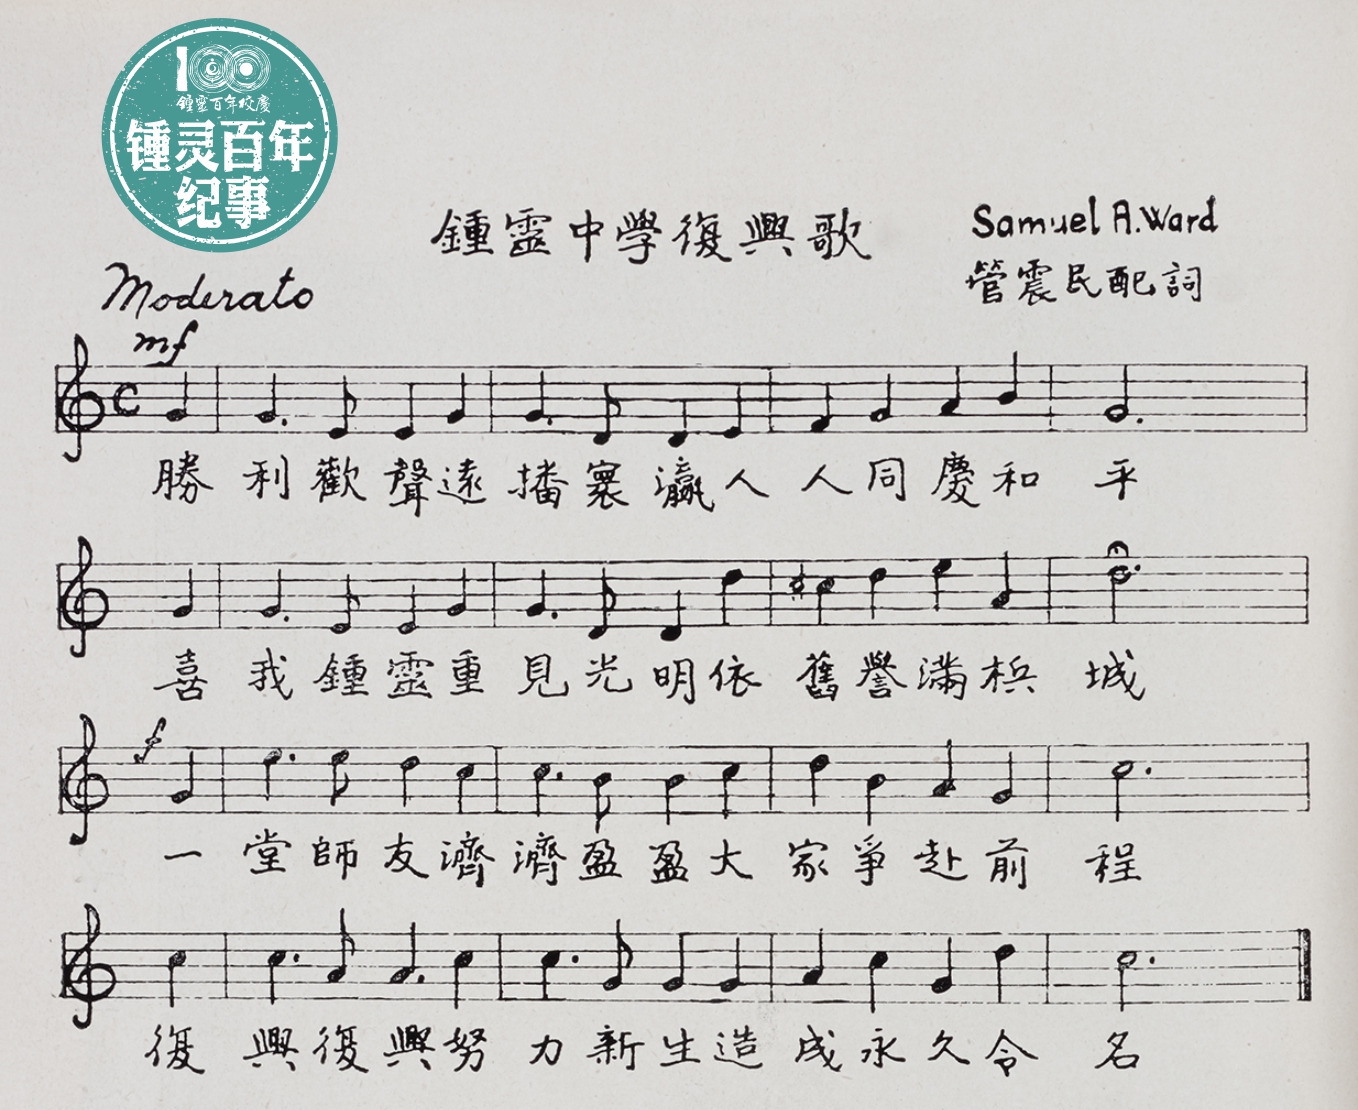 100
鍾靈百年校慶
锺灵百年
纪事
鍾靈中學復興歌
Samuel A. Ward
管震民配詞
Moderato
mf
勝利歡聲遠播寰瀛人人同慶和平
喜我鍾靈重見光明依舊譽滿梹城
f
一堂師友濟濟盈盈大家爭赴前程
復興復興努力新生造成永久令名